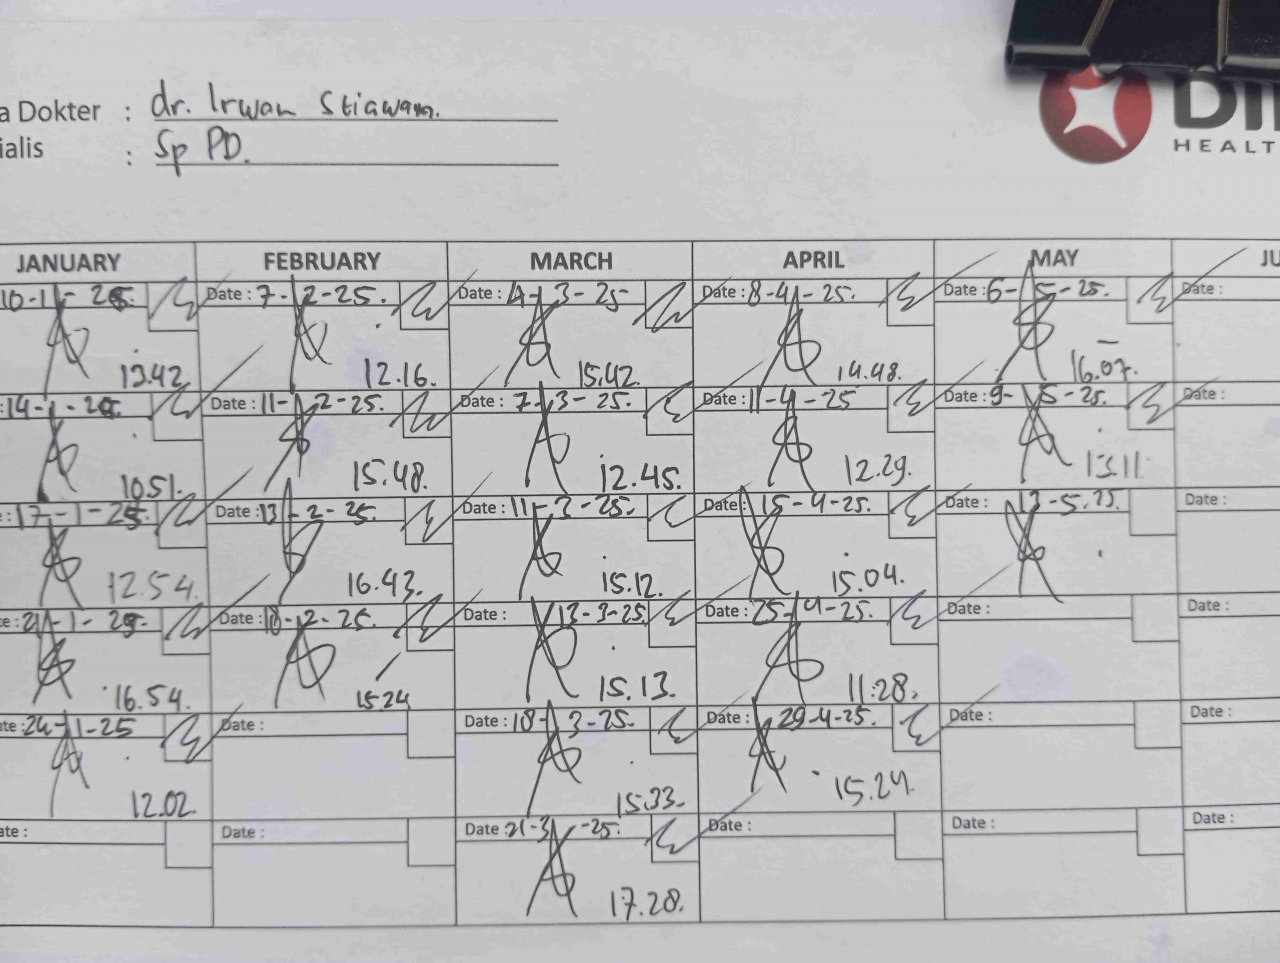 a Dokter : dr. Irwan Stiawan.
ialis : Sp PD.
DI
HEALT
JANUARY FEBRUARY MARCH APRIL MAY JU
10-1-25 Date : 7-2-25. Date : 4-3-25 Date : 8-4-25. Date : 6-5-25. Date :
13.42 12.16. 15.42. 14.48. 16.07.
: 14-1-25. Date : 11-2-25. Date : 7-3-25. Date : 11-4-25 Date : 9-5-25. Date :
10.51. 15.48. 12.45. 12.29. 13.11.
e : 17-1-25. Date : 13-2-25. Date : 11-3-25. 15-4-25. 13-5.25. Date :
12.54. 16.43. 15.12. 15.04.
te : 21-1-25. Date : 18-2-25. Date : 13-3-25. Date : 25-4-25. Date : Date :
16.54. 15.24 15.13. 11:28.
ate : 24-1-25 Date : Date : 18-3-25. Date : 29-4-25. Date : Date :
12.02. 15.33. 15.24.
ate : Date : Date : 21-3-25. Date : Date : Date :
17.28.